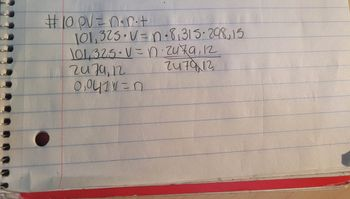 #10 PV = n·n·t
101,325·V = n·8,315·298,15
101,325·V = n·2479,12
2479,12 2479,12
0,041V = n